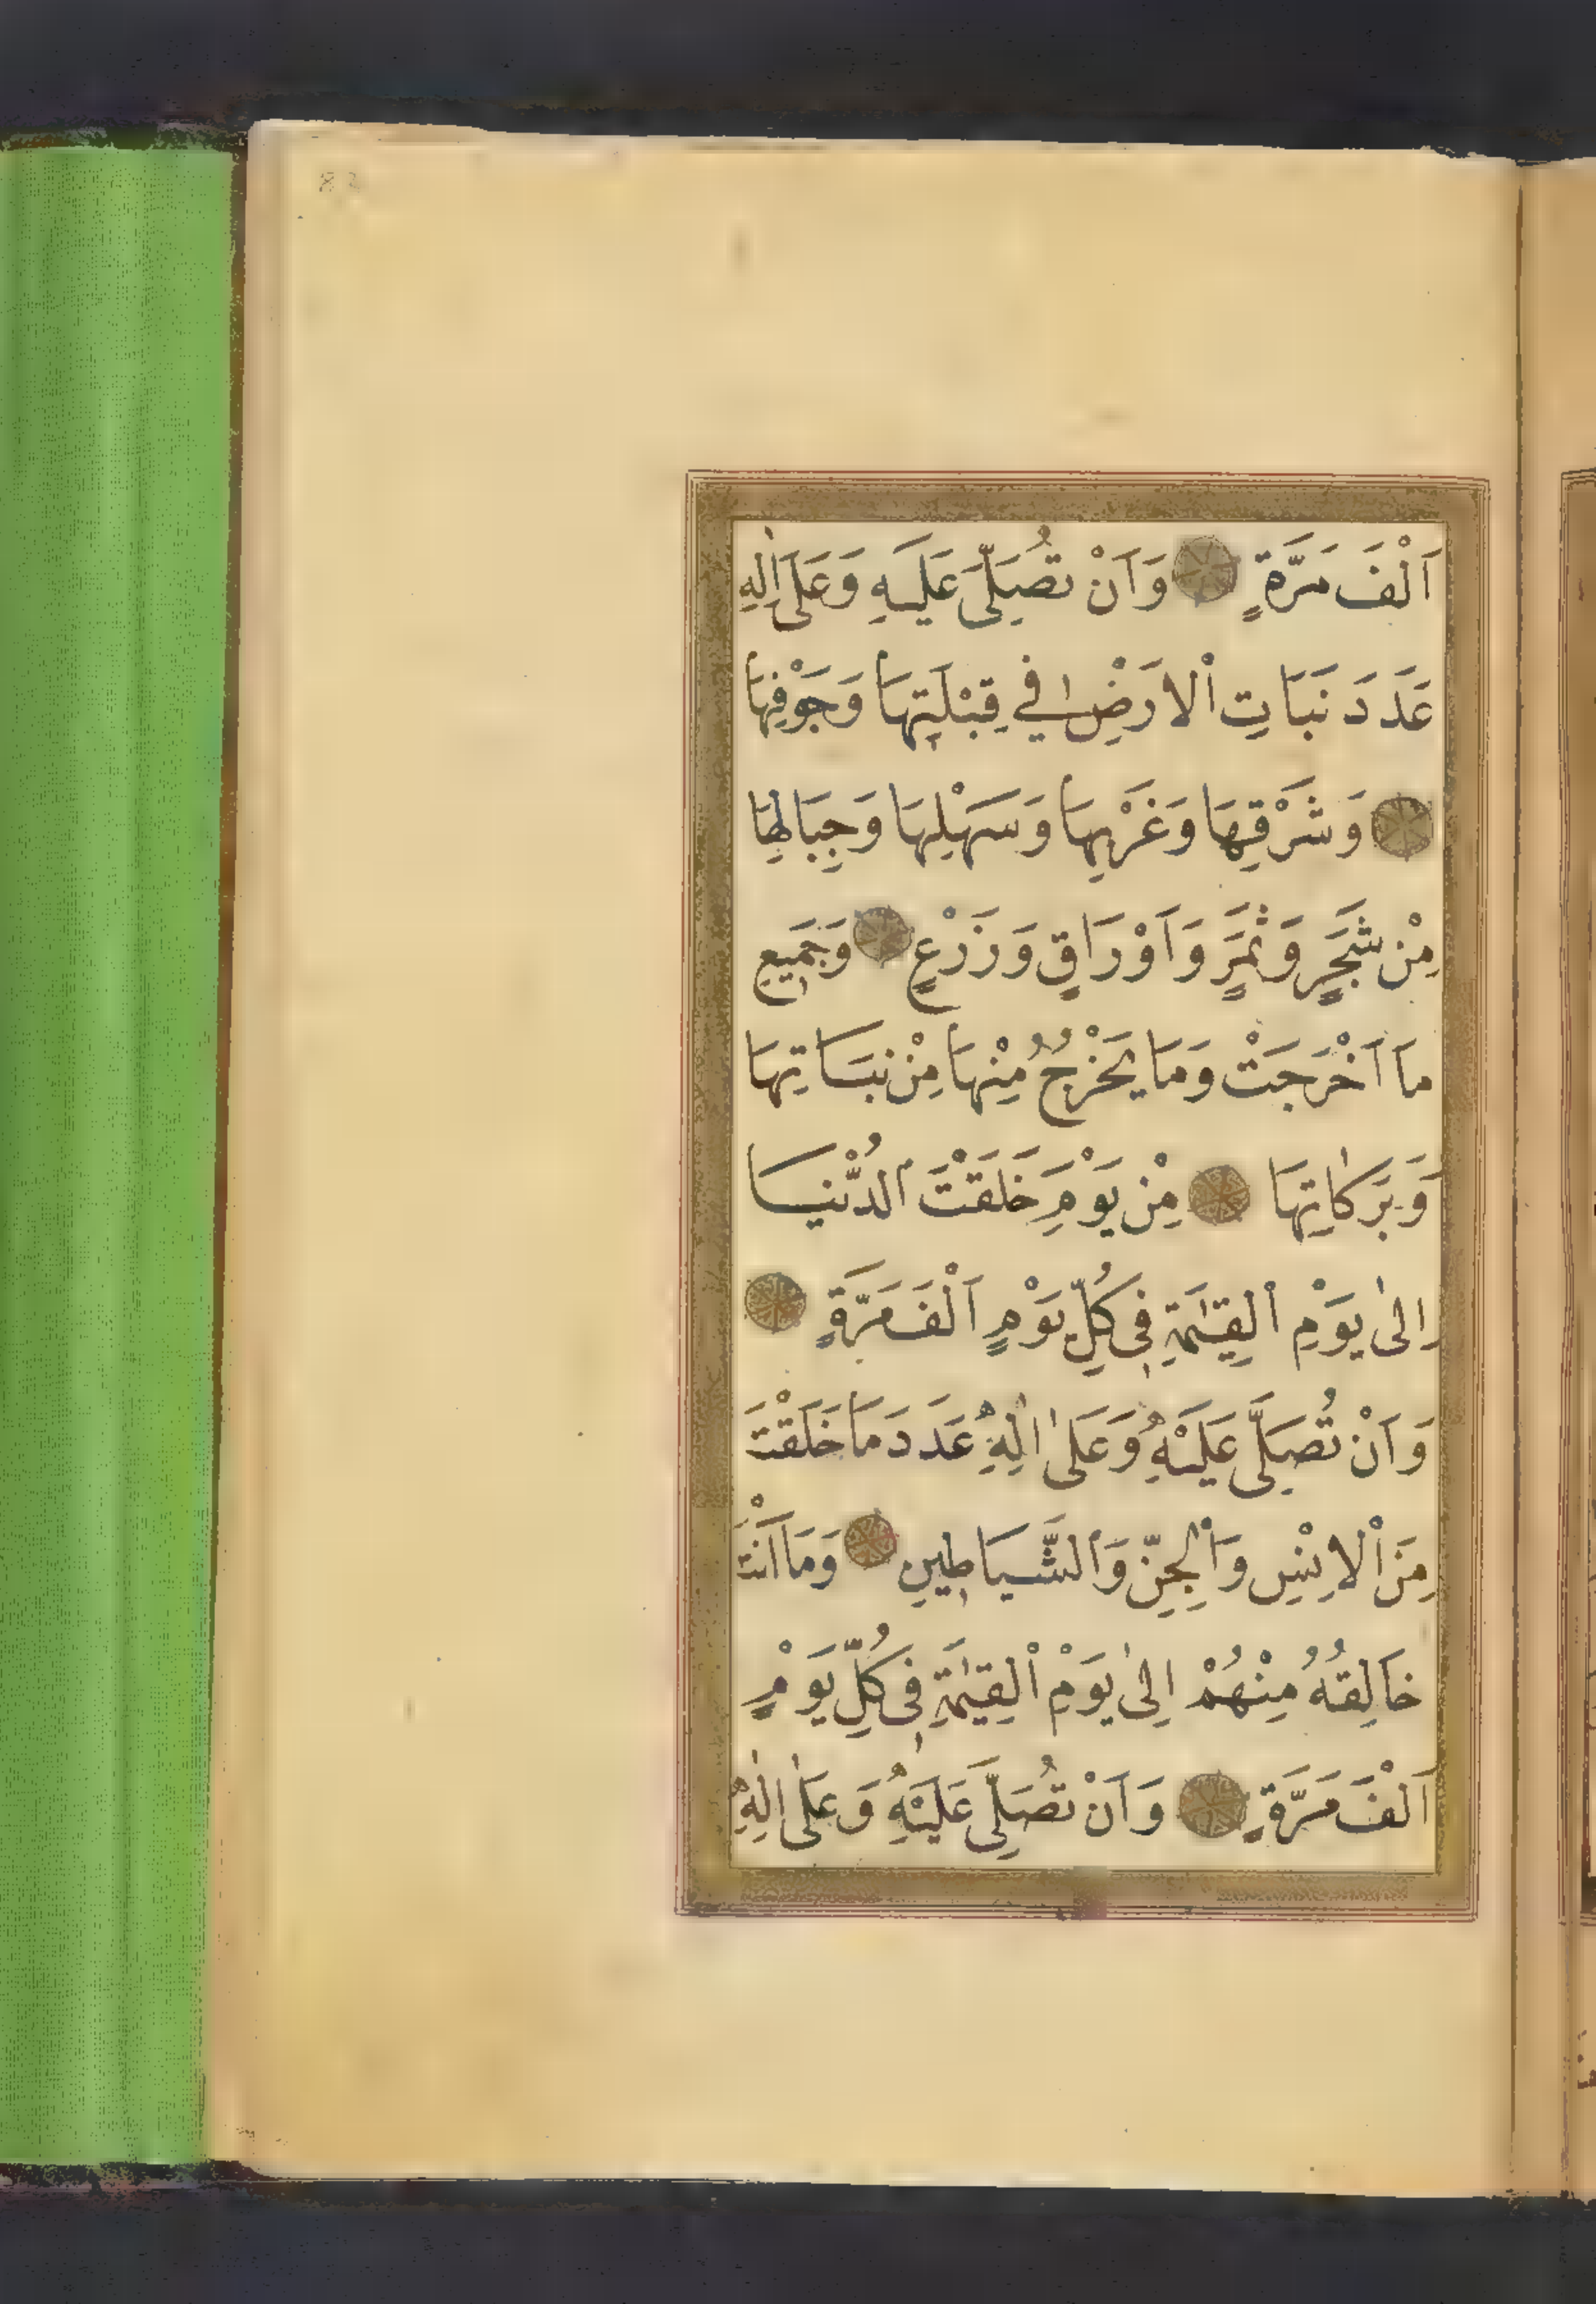 83
اَلْفَ مَرَّةٍ وَاَنْ تُصَلِّىَ عَلَيْهِ وَعَلٰى اٰلِهِ
عَدَدَ نَبَاتِ الْاَرْضِ فِي قِبْلَتِهَا وَجَوْفِهَا
وَشَرْقِهَا وَغَرْبِهَا وَسَهْلِهَا وَجِبَالِهَا
مِنْ شَجَرٍ وَثَمَرٍ وَاَوْرَاقٍ وَزَرْعٍ وَجَمِيعِ
مَا اَخْرَجَتْ وَمَا يَخْرُجُ مِنْهَا مِنْ نَبَاتِهَا
وَبَرَكَاتِهَا مِنْ يَوْمِ خَلَقْتَ الدُّنْيَا
اِلٰى يَوْمِ الْقِيٰمَةِ فِى كُلِّ يَوْمٍ اَلْفَ مَرَّةٍ
وَاَنْ تُصَلِّىَ عَلَيْهِ وَعَلٰى اٰلِهِ عَدَدَ مَا خَلَقْتَ
مِنَ الْاِنْسِ وَالْجِنِّ وَالشَّيَاطِينِ وَمَا اَنْتَ
خَالِقُهُ مِنْهُمْ اِلٰى يَوْمِ الْقِيٰمَةِ فِى كُلِّ يَوْمٍ
اَلْفَ مَرَّةٍ وَاَنْ تُصَلِّىَ عَلَيْهِ وَعَلٰى اٰلِهِ